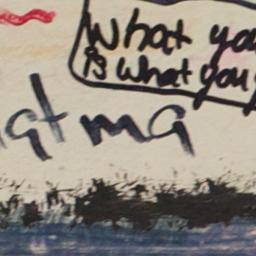 What you
is what you
at ma